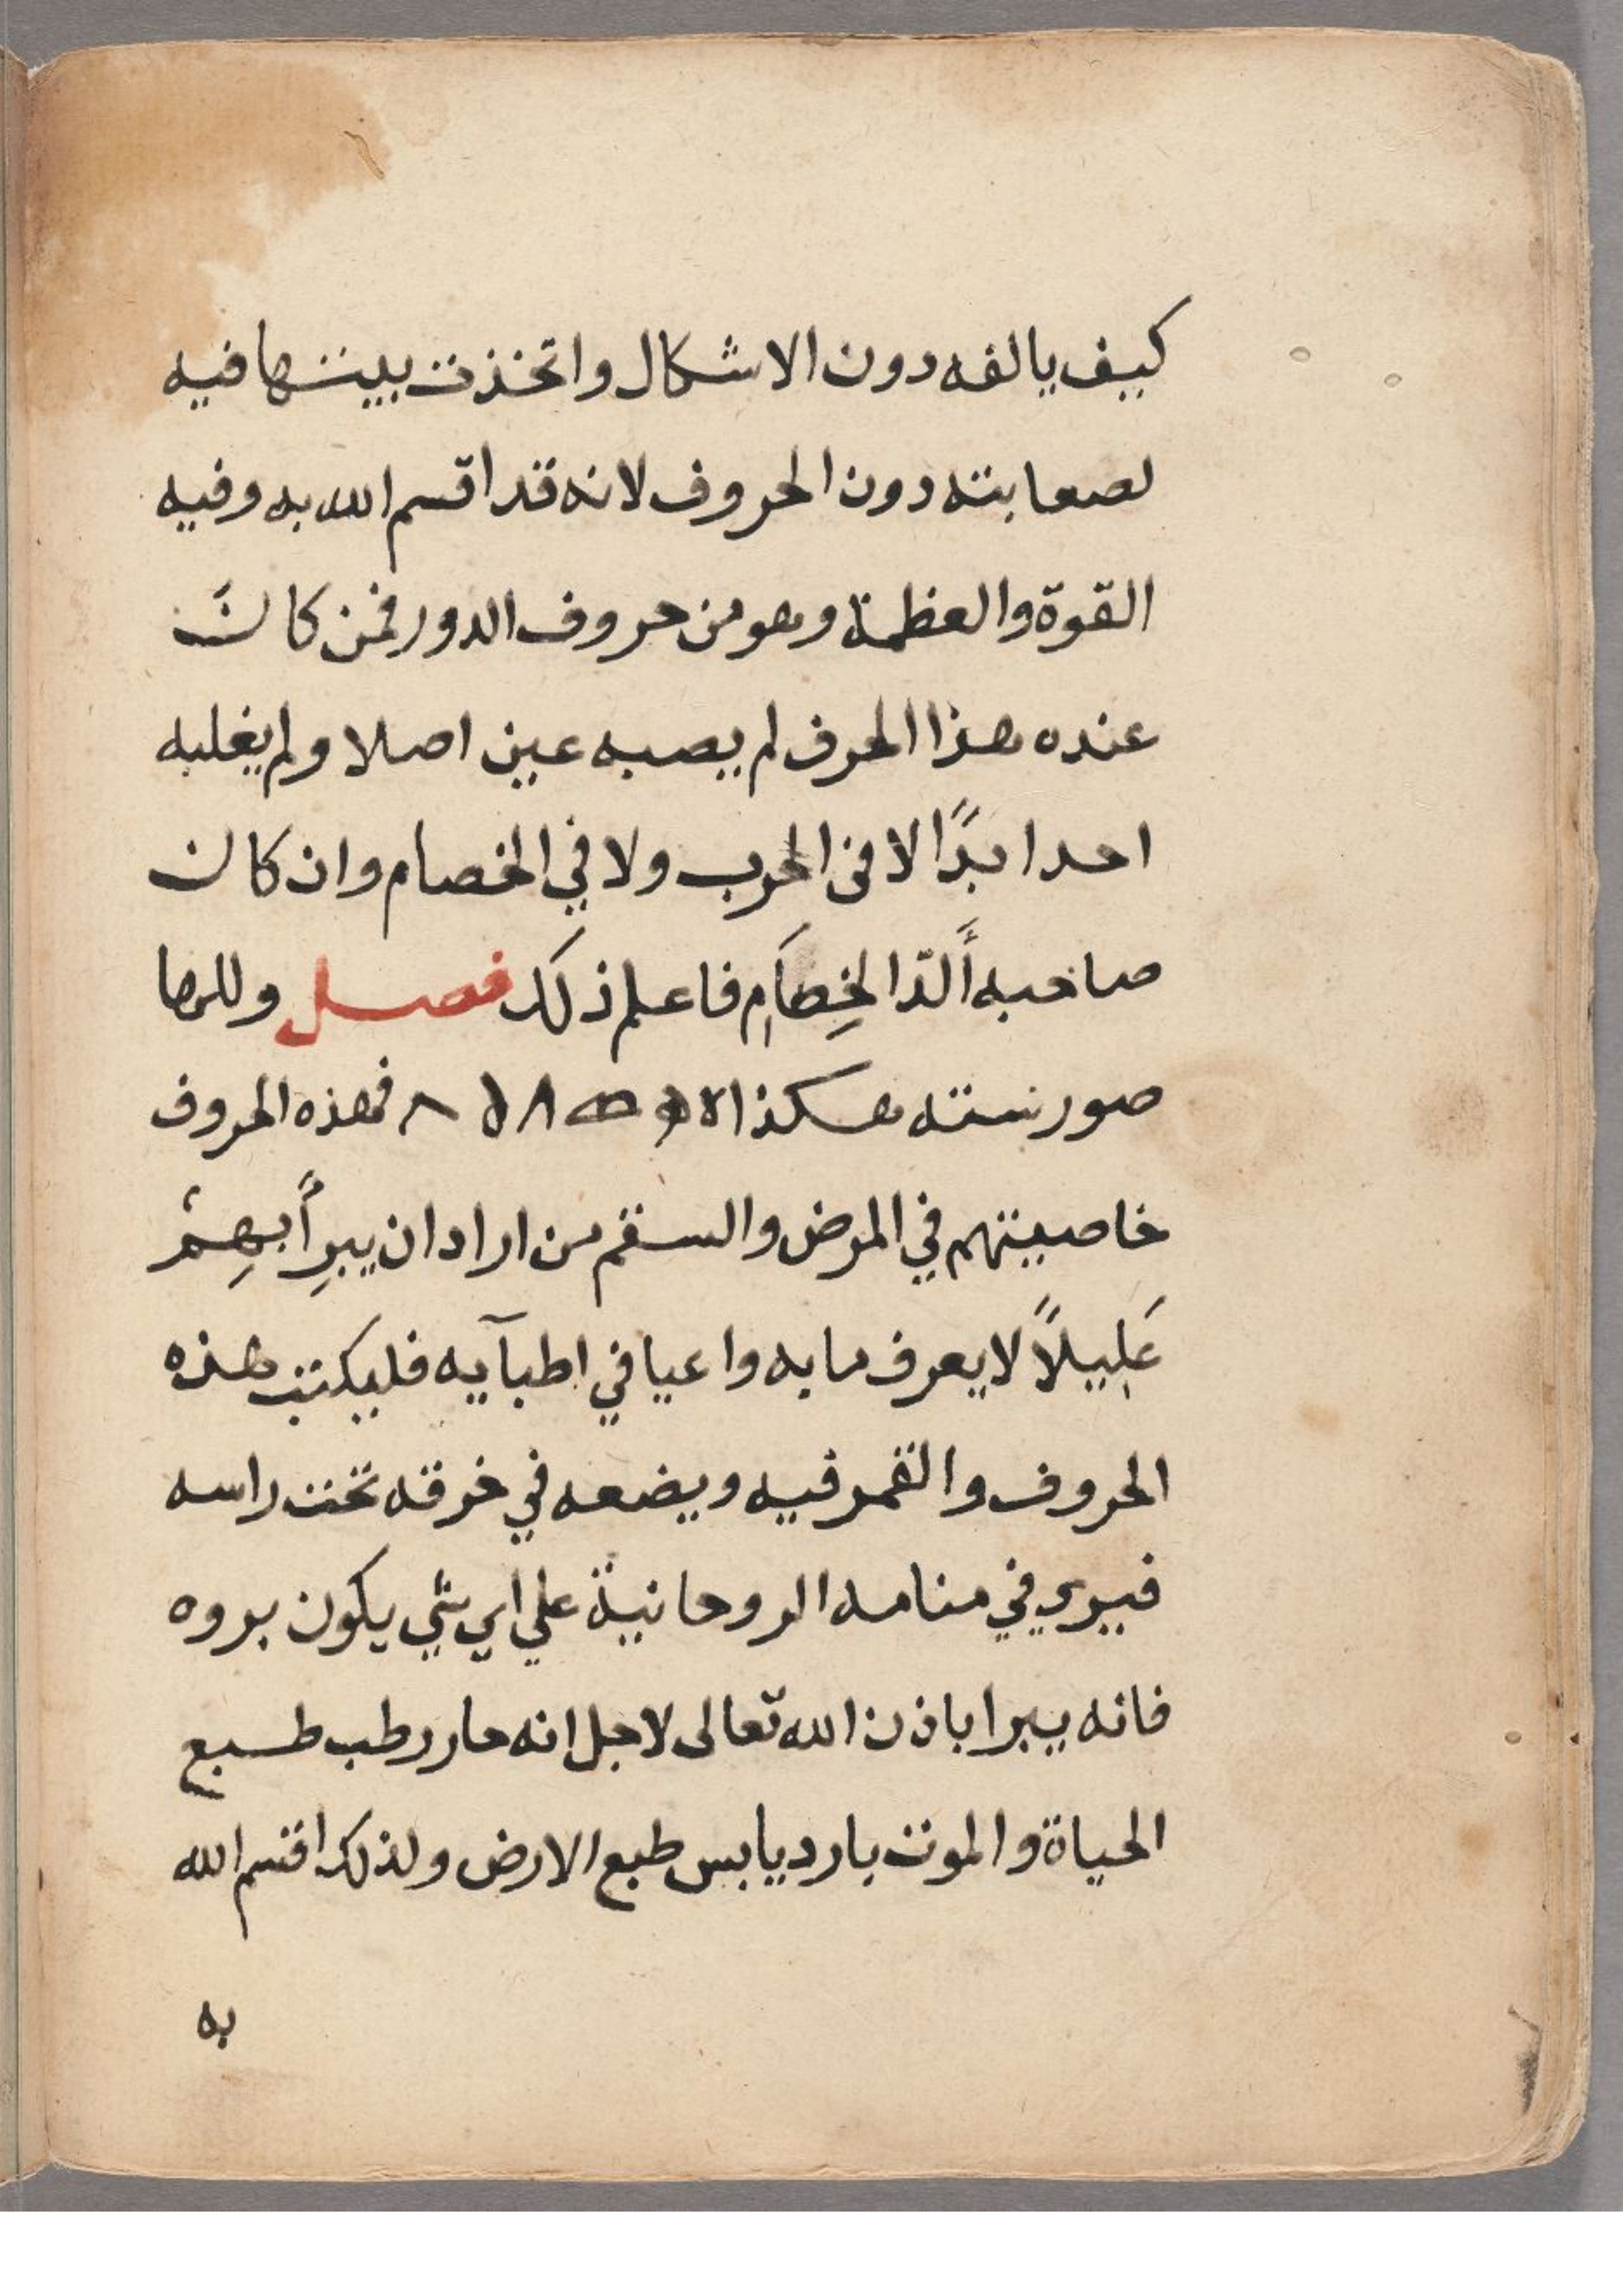 كيف يالفه دون الاشكال واتخذت بيتها فيه
لصعابته دون الحروف لانه قد اقسم الله به وفيه
القوة والعظمة وهو من حروف الدور فمن كانَ
عنده هذا الحرف لم يصبه عين اصلا ولم يغلبه
احد ابدًا لا في الحرب ولا في الخصام وان كان
صاحبه أَلدّ الخِصَامِ فاعلم ذلك فصل وللها
صور ستة هكذا فهذه الحروف
خاصيتهم في المرض والسقم من اراد ان يبرِأَ بهِمْ
عَلِيلاً لا يعرف ما به واعيا في اطبآيه فليكتب هذه
الحروف والقمر فيه ويضعه في خرقه تحت راسه
فيري في منامه الروحانية علي اي شي يكون بروه
فانه يبرا باذن الله تعالى لاجل انه حار رطب طبع
الحياة والموت بارد يابس طبع الارض ولذلك اقسم الله
به